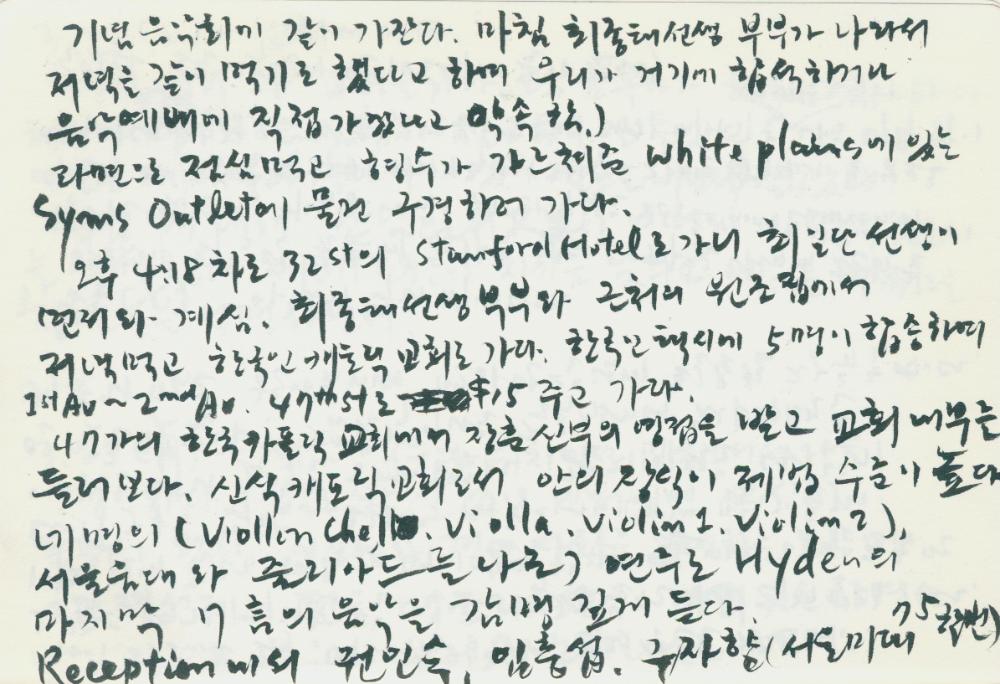 기념음악회에 같이 가잔다. 마침 최종태선생 부부가 나와서
저녁을 같이 먹기로 했다고 하며 우리가 거기에 합석하거나
음악예배에 직접 가겠다고 약속함.)
라면으로 점심먹고 형수가 가르쳐준 white plains에 있는
Syms Outlet에 물건 구경하러 가다.
오후 4:18차로 32st의 Stanford Hotel로 가니 최일단 선생이
먼저 와 계심. 최종태선생 부부와 근처의 원조집에서
저녁먹고 한국인 캐토릭 교회로 가다. 한국인 택시에 5명이 합승하여
1st Av ~ 2nd Av. 47th st로 $15 주고 가다.
47가의 한국카톨릭 교회에서 신부의 영접을 받고 교회 내부를
둘러보다. 신식캐토릭교회로서 안의 장식이 제법 수준이 높다
네명의 (Viollin Chello, Violla, Violin 1, Violin 2),
서울음대와 쥴리아드들 나온) 연주로 Hyden의
마지막 7 의 음악을 감명 깊게 듣다.
Reception에의 권인숙, 임충섭, (서울미대 75학번)